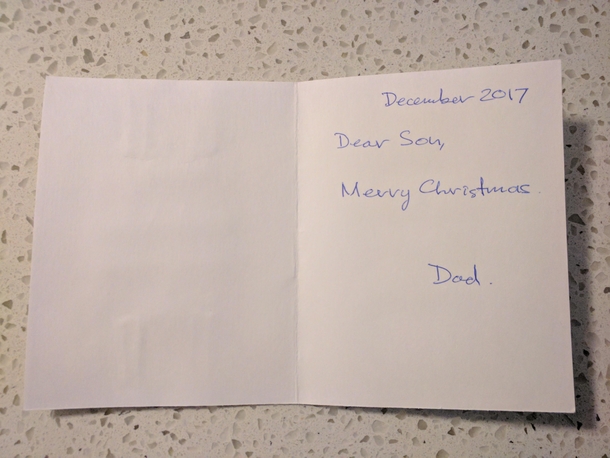 December 2017
Dear Son,
Merry Christmas.
Dad.